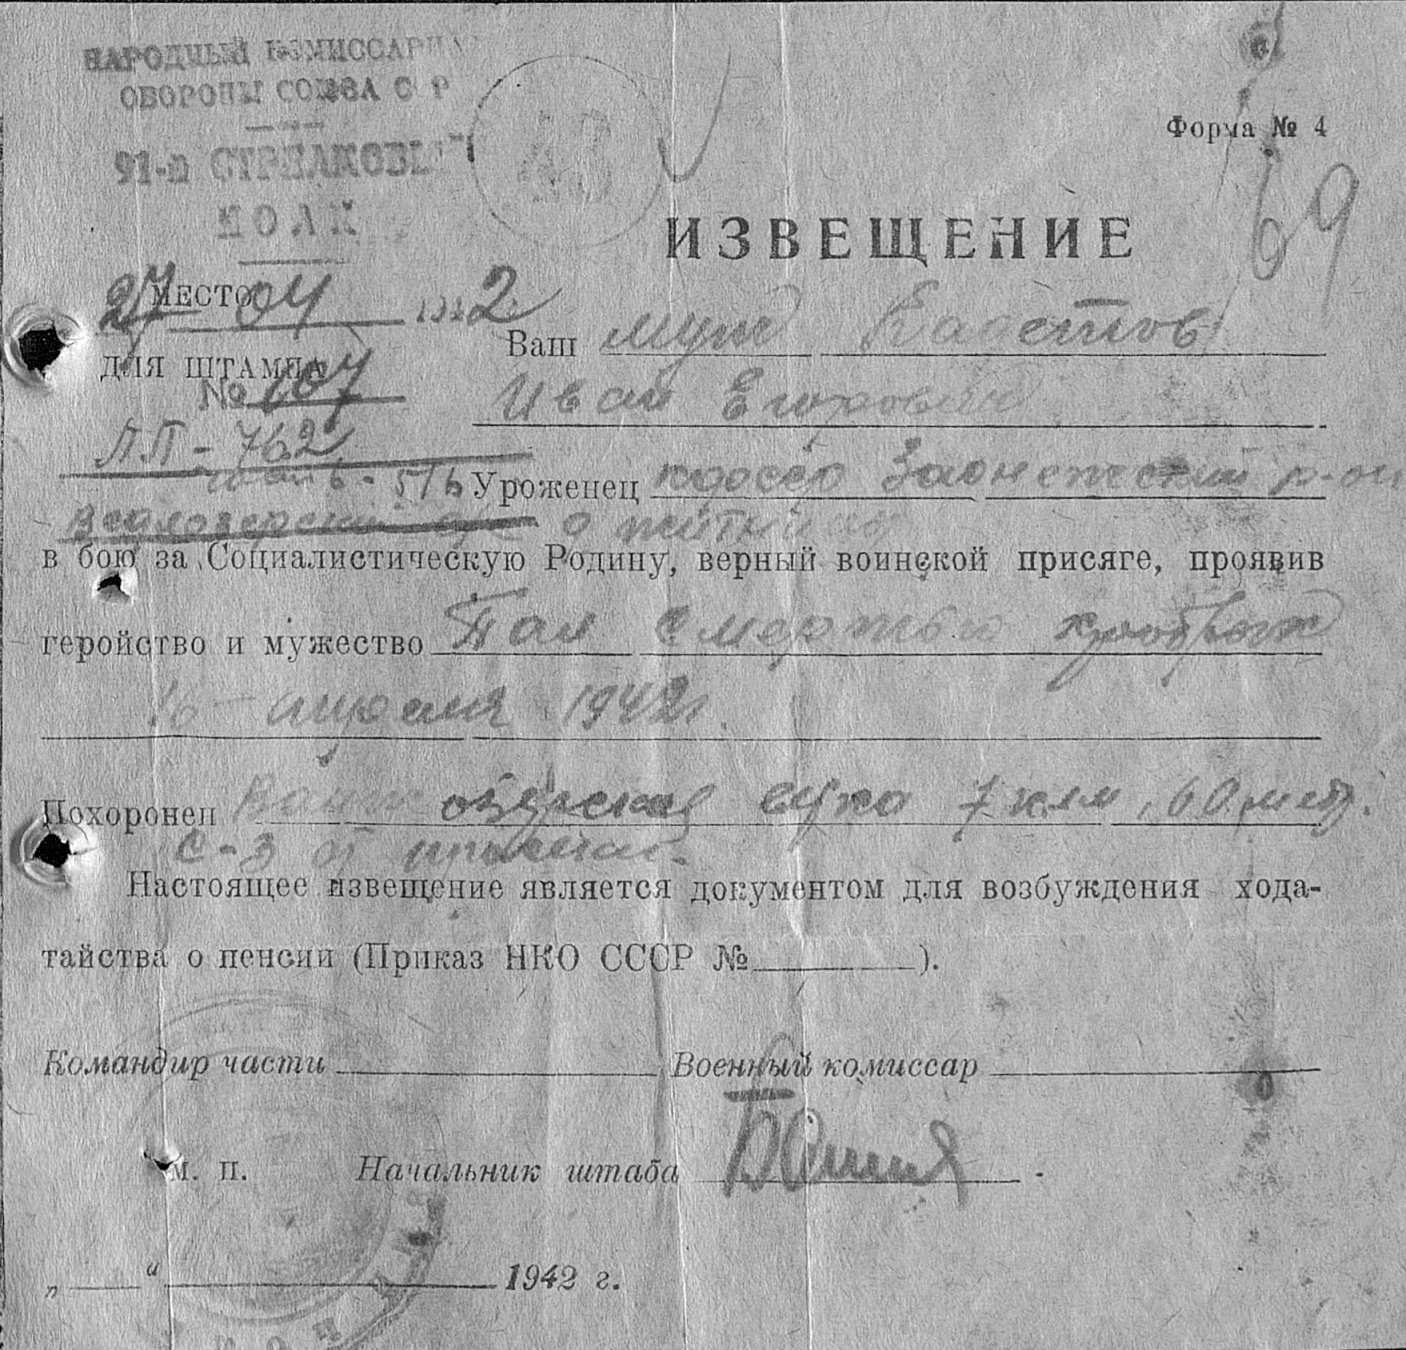 НАРОДНЫЙ КОМИССАРИА
ОБОРОНЫ СОЮЗА С Р
91-й СТРЕЛКОВЫЙ
ПОЛК
Форма № 4
69
ИЗВЕЩЕНИЕ
МЕСТО
27 04 1942
ДЛЯ ШТАМПА
№ 107
П.П - 762
Ваш муж
Иван Егорович
Уроженец Заонежский р-он
в бою за Социалистическую Родину, верный воинской присяге, проявив
геройство и мужество Пал смертью храбрых
16 - апреля 1942г.
Похоронен 7 клм, 60 мет.
С-З от
Настоящее извещение является документом для возбуждения хода-
тайства о пенсии (Приказ НКО СССР № ).
Командир части Военный комиссар
м. п. Начальник штаба
„ “ 1942 г.